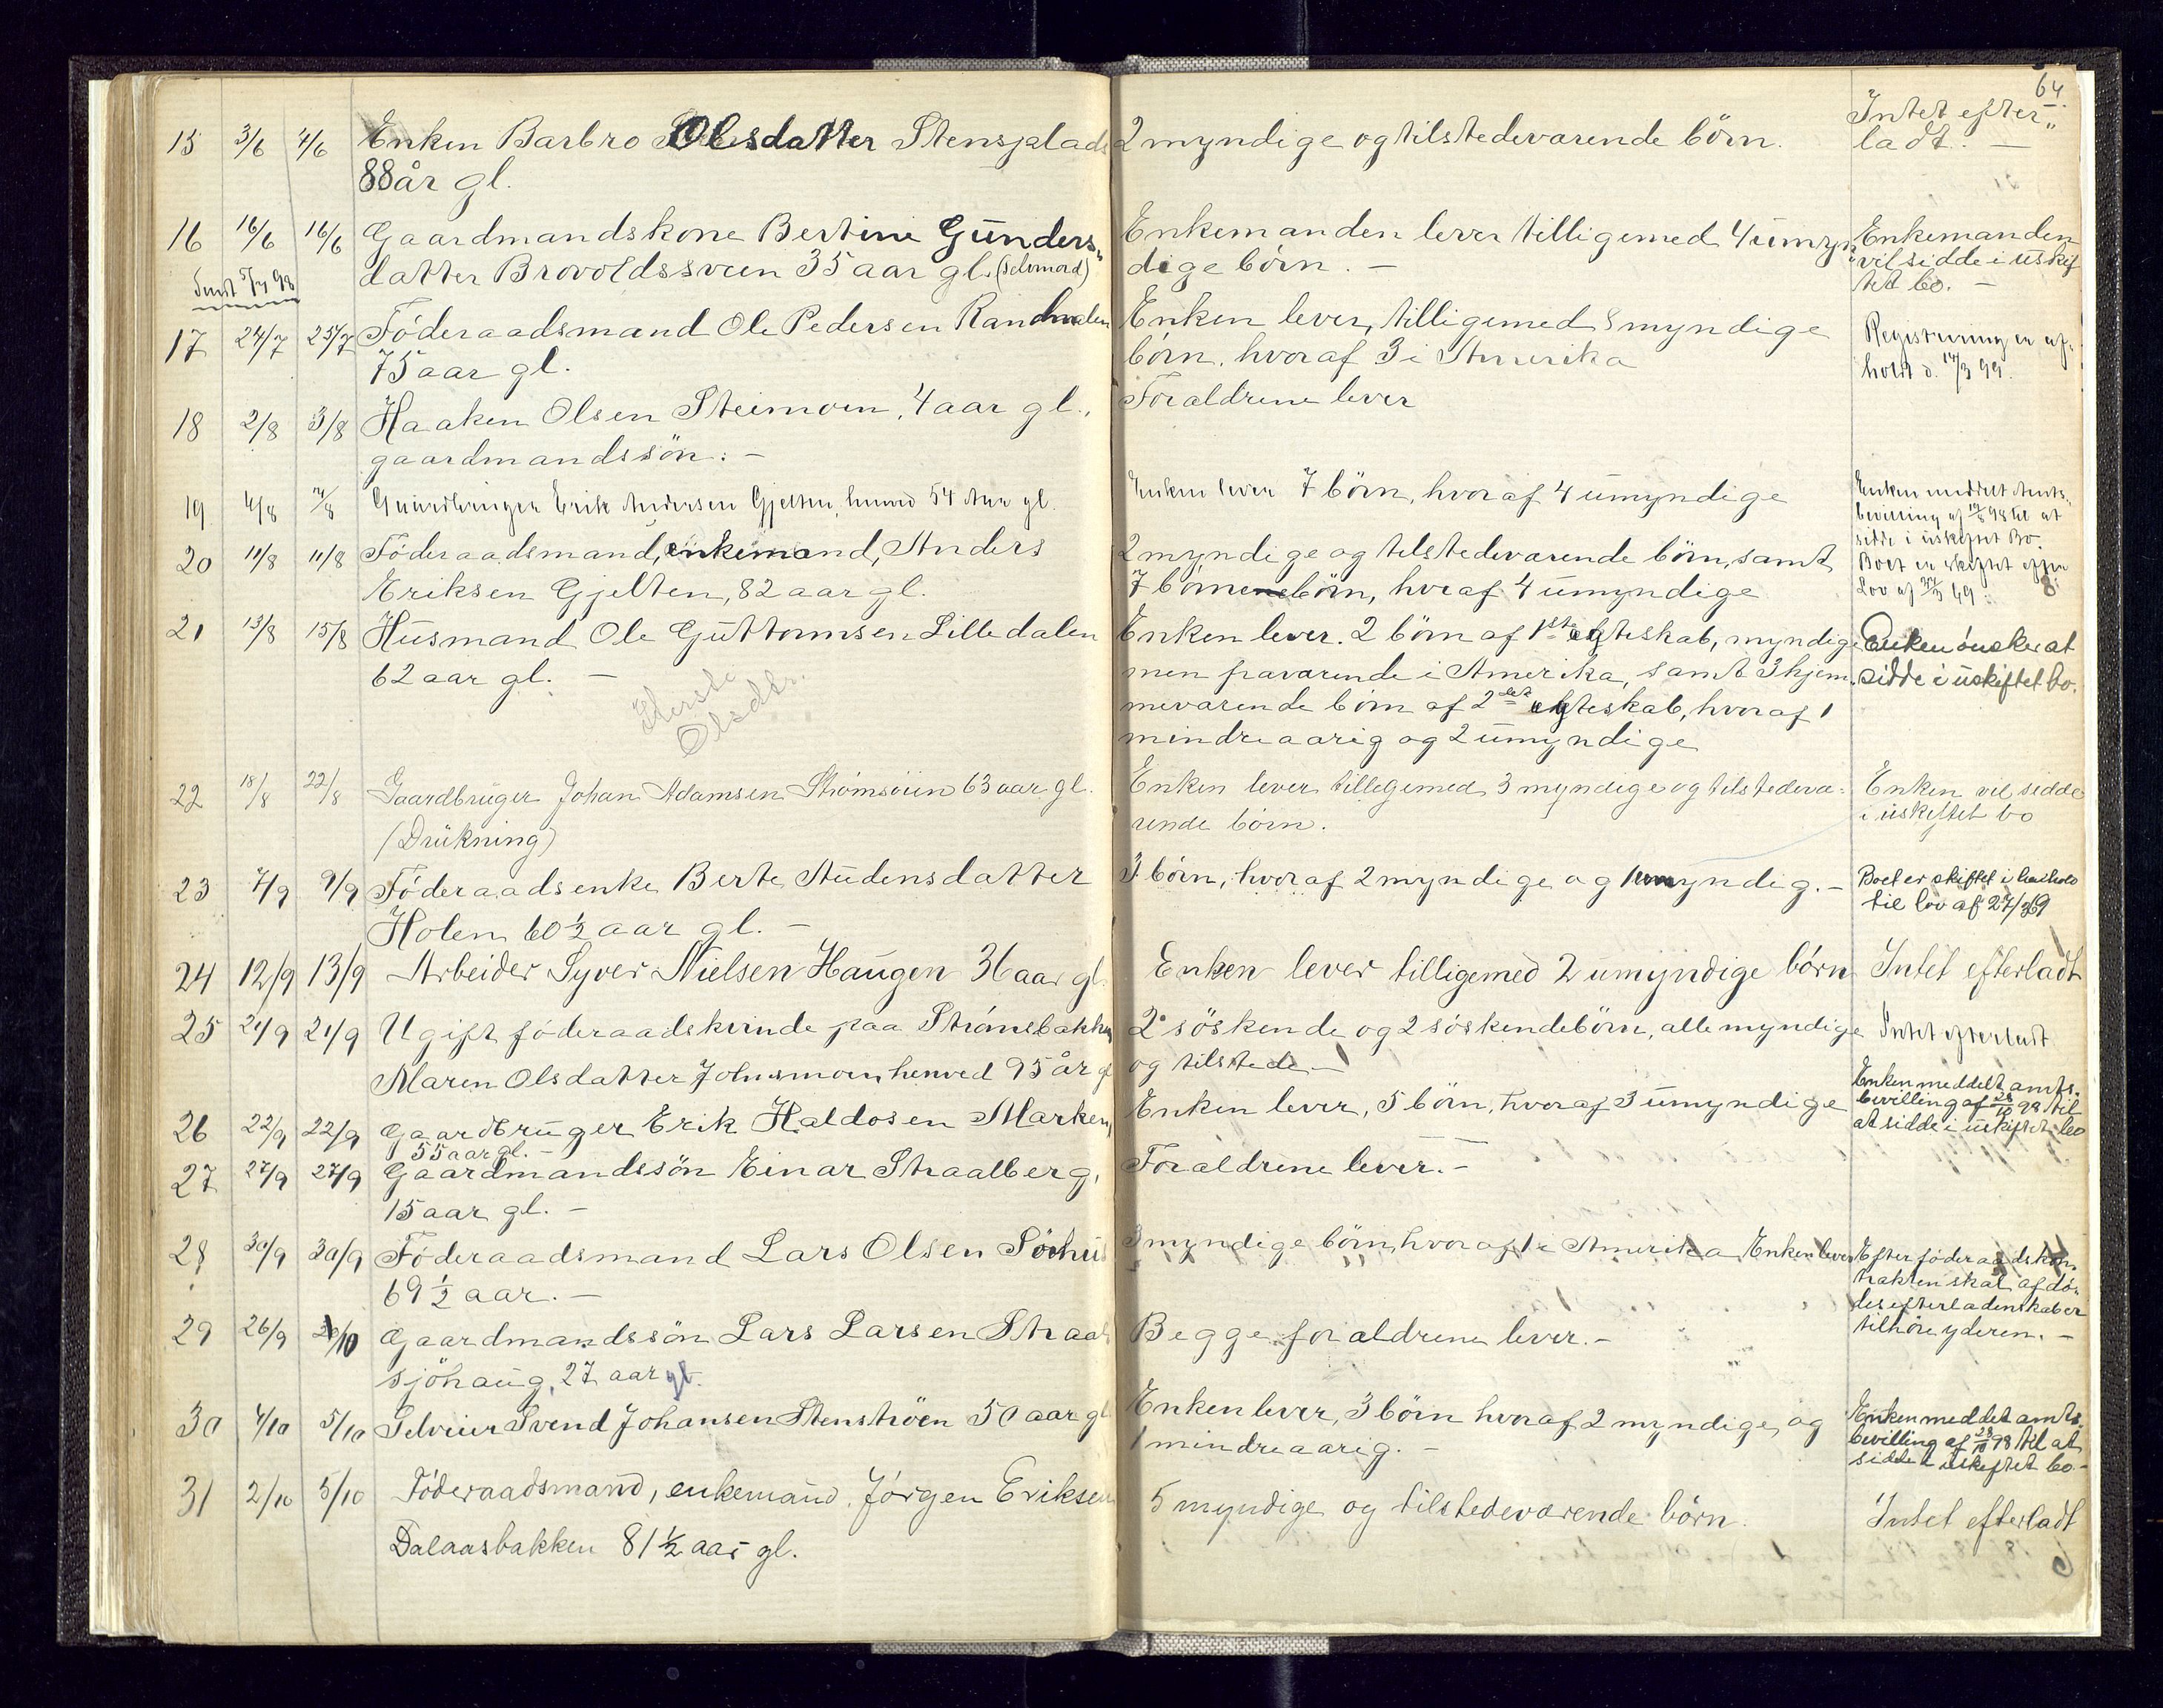 64.
15 3/6 4/6 Enken Barbro Olsdatter Stensplads 2 myndige og tilstedeværende börn. Intet efter„
88 år gl. ladt. —
16 16/6 16/6 Gaardmandskone Bertine Gunders„ Enkemanden lever tilligemed 4 umyn„ Enkemanden
datter Brovoldssveen 35 aar gl. (selvmord) dige börn. — vil sidde i uskif
Sendt 5/7 98 tet bo. —
17 24/7 25/7 Föderaadsmand Ole Pedersen Randmælen Enken lever, tilligemed 8 myndige Registrering er af-
75 aar gl. börn, hvoraf 3 i Amerika holdt d. 14/3 99.
18 2/8 3/8 Haaken Olsen Steimoen, 4 aar gl., Forældrene lever
gaardmandssön. —
19 4/8 Gaardbruger Erik Andersen Gjelten, henved 54 Aar gl. Enken lever 7 börn, hvoraf 4 umyndige Enken meddelt Amts-
bevilling af 19/8 98 til at
sidde i uskiftet Bo.
20 11/8 11/8 Föderaadsmand, enkemand, Anders 2 myndige og tilstedeværende börn, samt Boet er skiftet efter
Eriksen Gjelten, 82 aar gl. 7 börnebörn, hvoraf 4 umyndige Lov af 27/3 69.
21 13/8 15/8 Husmand Ole Guttormsen Lilledalen Enken lever. 2 börn af 1ste egteskab, myndige Enken önsker at
62 aar gl. — men fraværende i Amerika, samt 3 hjem- sidde i uskiftet bo.
Olsdtr. meværende börn af 2det egteskab, hvoraf 1
mindreaarig og 2 umyndige
22 18/8 22/8 Gaardbruger Johan Adamsen Strömsöien 63 aar gl. Enken lever tillegemed 3 myndige og tilstedevæ- Enken vil sidde
(Drukning) rende börn. i uskiftet bo
23 7/9 9/9 Föderaadsenke Berte Audensdatter 3 börn, hvoraf 2 myndige og 1 umyndig. — Boet er skiftet i henhold
Holen 60 ½ aar gl. — til lov af 27/3 69
24 12/9 13/9 Arbeider Syver Nielsen Haugen 36 aar gl. Enken lever tilligemed 2 umyndige börn Intet efterladt
25 21/9 21/9 Ugift föderaadskvinde paa Strömsbakken 2 söskende og 2 söskendebörn, alle myndige Intet efterladt
Maren Olsdatter Johnsmoen henved 95 år gl og tilstede. —
26 22/9 22/9 Gaardbruger Erik Haldosen Marken, Enken lever, 5 börn, hvoraf 3 umyndige Enken meddelt amts-
55 aar gl. — bevilling af 28/10 98 til
at sidde i uskiftet bo
27 27/9 27/9 Gaardmandssön Einar Straalberg, Forældrene lever. —
15 aar gl. —
28 30/9 30/9 Föderaadsmand Lars Olsen Söshus 3 myndige börn, hvoraf 1 i Amerika Enken lever Efter föderaadskon-
69 ½ aar. — trakten skal afdö-
des efterladenskaber
tilhöre yderen. —
29 26/9 Gaardmandssön Lars Larsen Straal Begge forældrene lever. —
sjöhaug, 27 aar gl.
30 4/10 5/10 Selveier Svend Johansen Stenströen 50 aar gl Enken lever, 3 börn hvoraf 2 myndige og Enken meddelt amts-
1 mindreaarig. — bevilling af 28/10 98 til at
sidde i uskiftet bo. —
31 2/10 5/10 Föderaadsmand, enkemand, Jörgen Eriksen 5 myndige og tilstedeværende börn. Intet efterladt
Dalaasbakken 81 ½ aar gl.